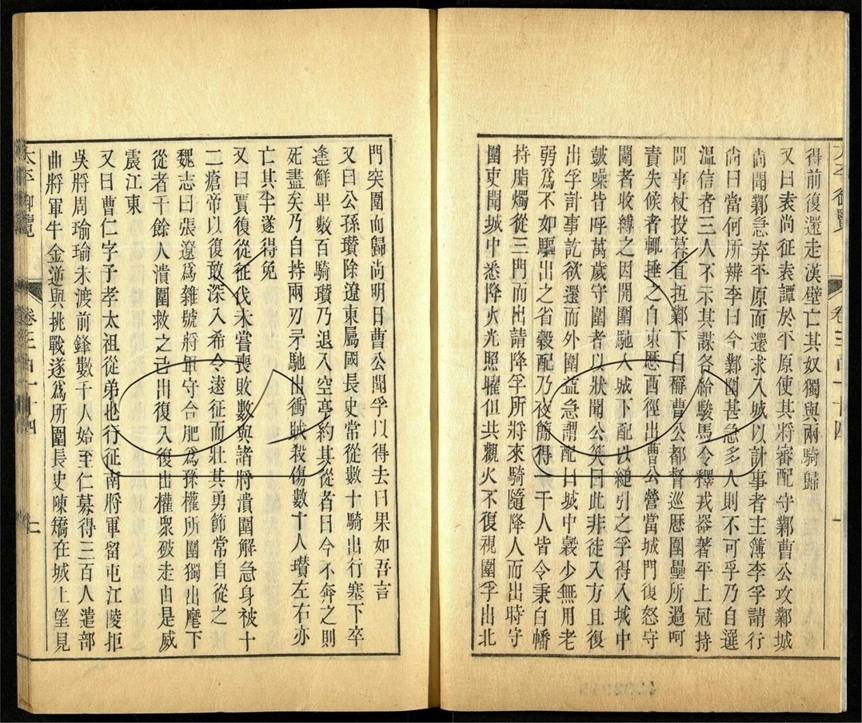 太平御覽 卷三百一十四
得前復還走漢壁亡其奴獨與兩騎歸
又曰袁尚征袁譚於平原使其將審配守鄴曹公攻鄴城
尚聞鄴急弃平原而還求入城以計事者主簿李孚請行
尚曰當何所辨李曰今鄴圍甚急多人則不可孚乃自選
温信者三人不示其謀各給駿馬令釋戎器著平上冠持
問事杖投暮直抵鄴下自稱曹公都督巡歷圍壘所過呵
責失候者輒捶之自東歷西徑出曹公營當城門復怒守
圍者收縛之因開圍馳入城下配以縋引之孚得入城中
鼓噪皆呼萬歲守圍者以狀聞公笑曰此非徒入方且復
出孚計事訖欲還而外圍益急謂配曰城中穀少無用老
弱爲不如驅出之省穀配乃夜簡得千人皆令秉白幡
持脂燭從三門而出請降孚所將來騎隨降人而出時守
圍吏聞城中悉降火光照曜但共觀火不復視圍孚出北
門突圍而歸尚明日曹公聞孚以得去曰果如吾言
又曰公孫瓚除遼東屬國長史常從數十騎出行塞下卒
逢鮮卑數百騎瓚乃退入空亭約其從者曰今不奔之則
死盡矣乃自持兩刃矛馳出衝賊殺傷數十人瓚左右亦
亡其半遂得免
又曰賈復從征伐未嘗喪敗數與諸將潰圍解急身被十
二瘡帝以復敢深入希令遠征而壯其勇節常自從之
魏志曰張遼爲雜號將軍守合肥爲孫權所圍獨出麾下
從者千餘人潰圍救之已出復入復出權衆破走由是威
震江東
又曰曹仁字子孝太祖從弟也行征南將軍留屯江陵拒
吳將周瑜瑜未渡前鋒數千人始至仁募得三百人遣部
曲將軍牛金逆與挑戰遂爲所圍長史陳矯在城上望見
太平御覽 卷三百一十四 二